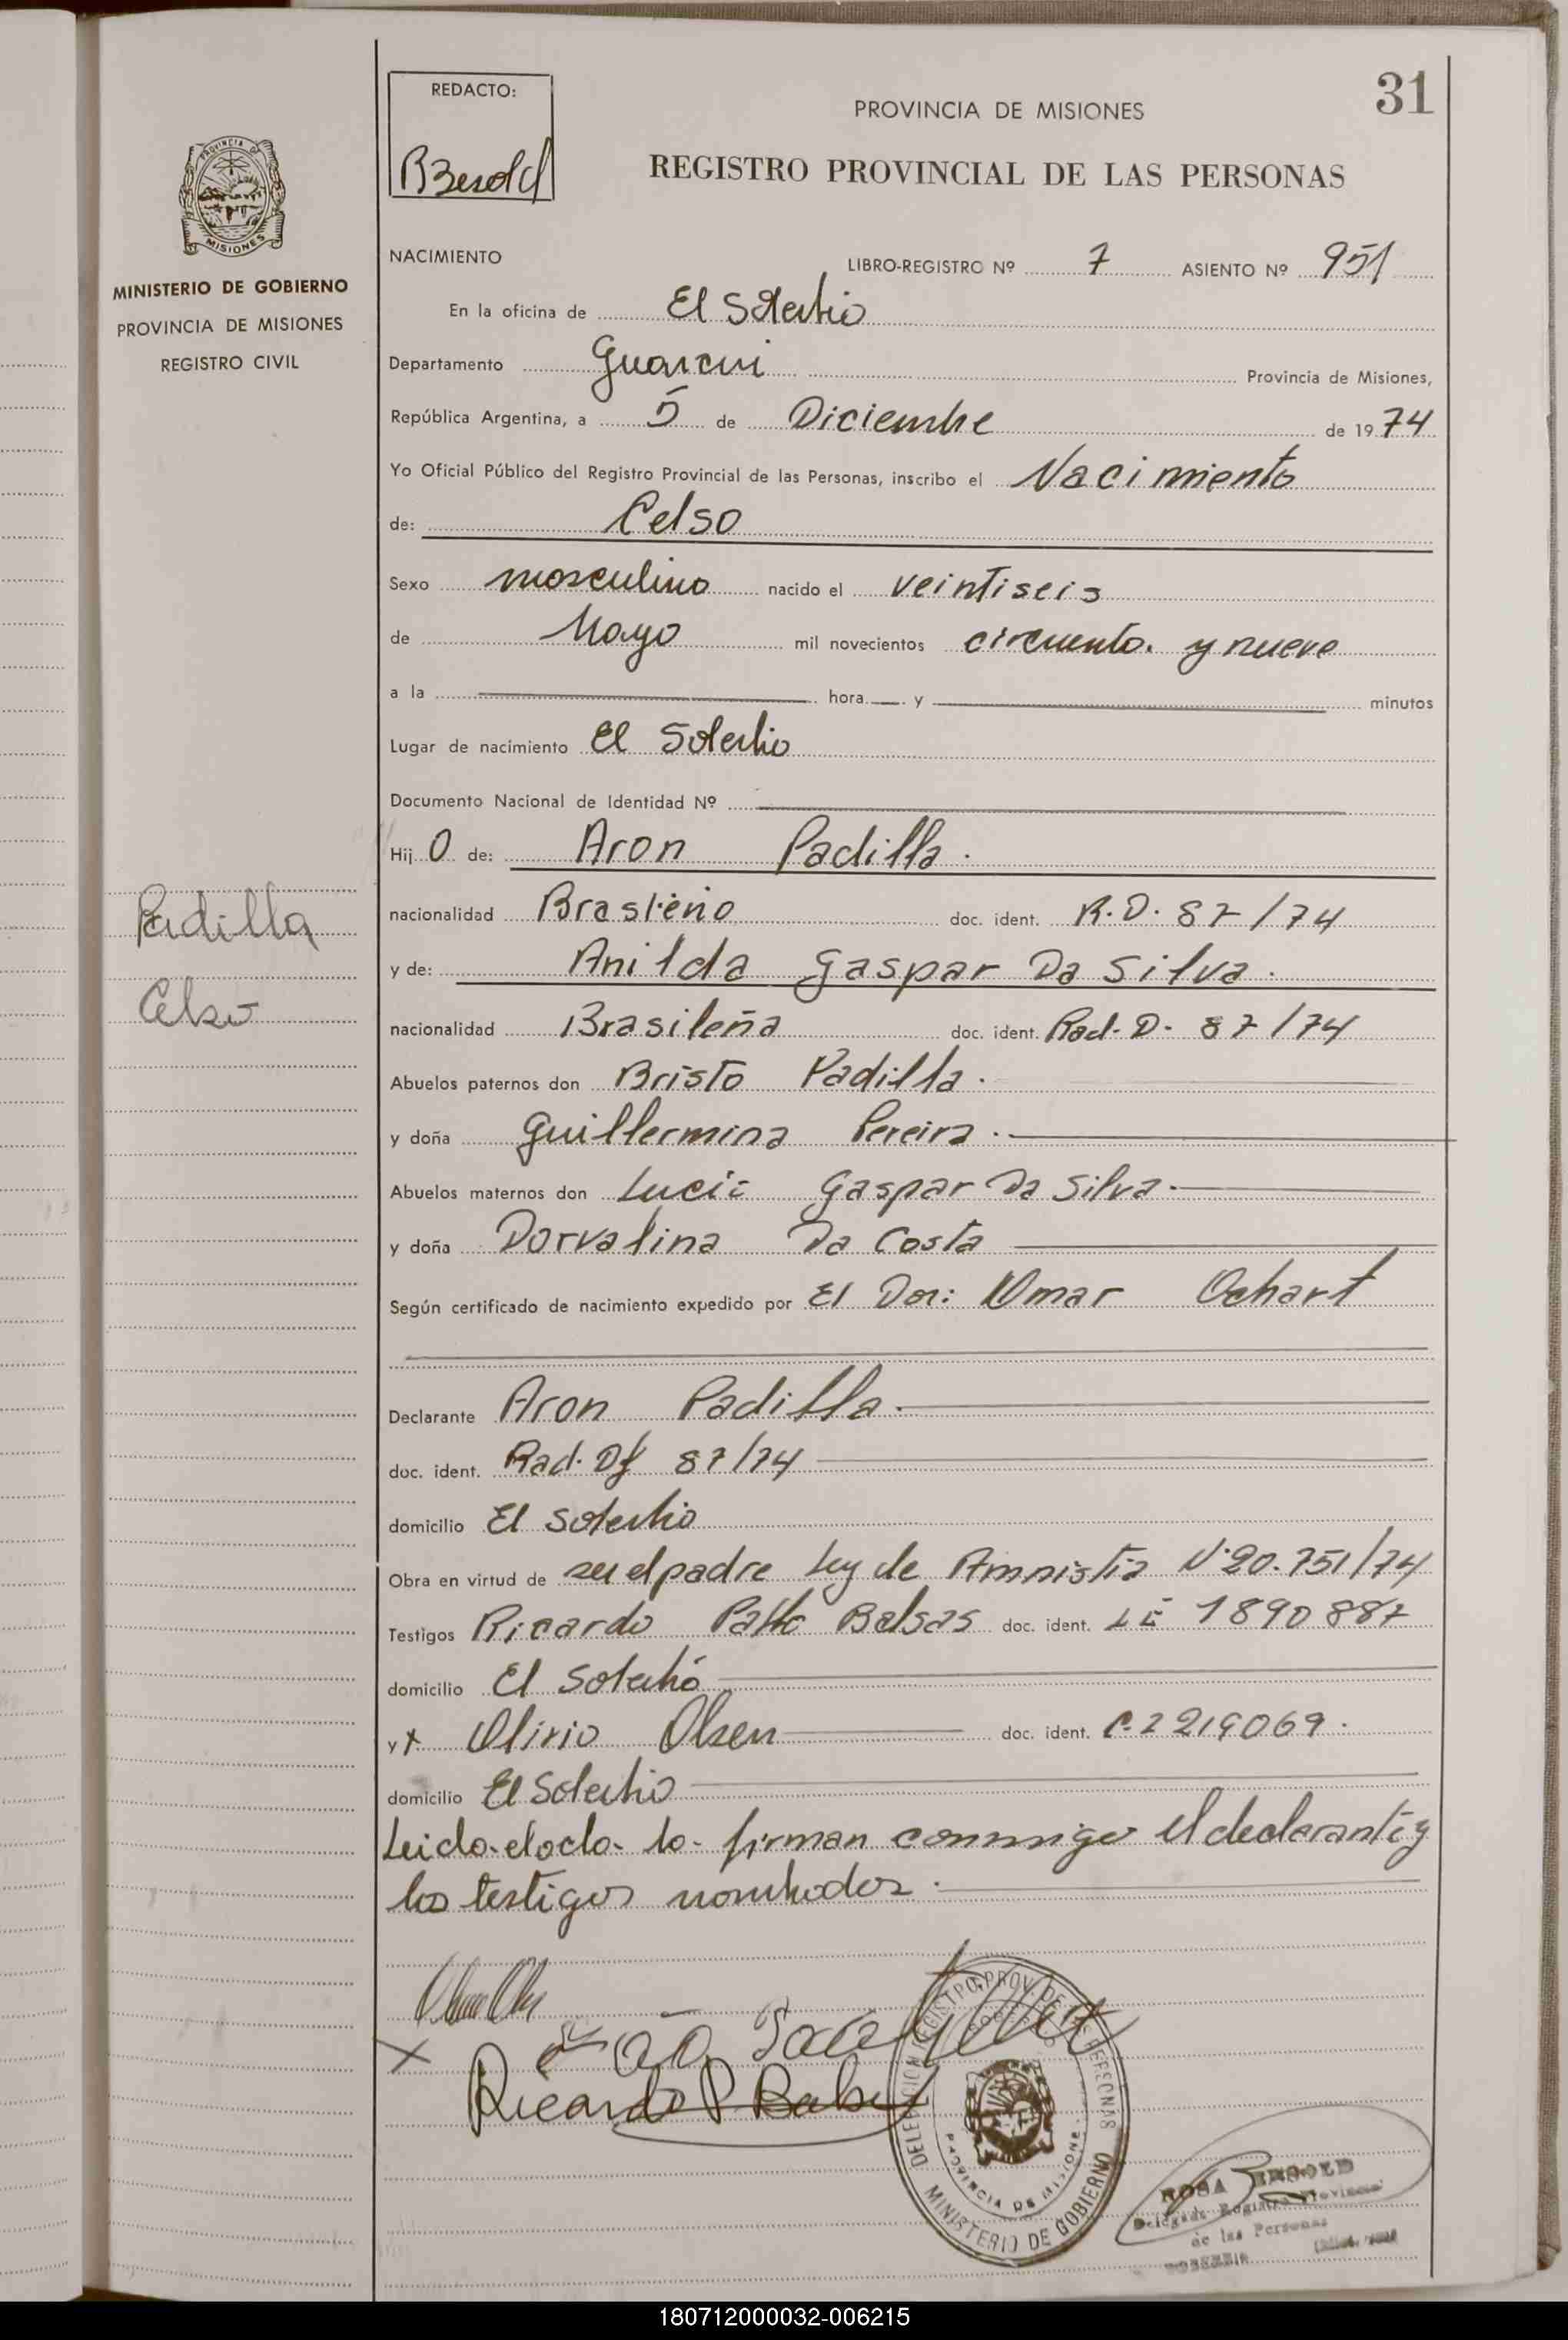 31
REDACTO:
Bzesold
PROVINCIA DE MISIONES
REGISTRO PROVINCIAL DE LAS PERSONAS
PROVINCIA DE
MISIONES
MINISTERIO DE GOBIERNO
PROVINCIA DE MISIONES
REGISTRO CIVIL
NACIMIENTO LIBRO-REGISTRO Nº 7 ASIENTO Nº 951
En la oficina de El Soberbio
Departamento Guarani Provincia de Misiones,
República Argentina, a 5 de Diciembre de 1974
Yo Oficial Público del Registro Provincial de las Personas, inscribo el Nacimiento
de: Celso
Sexo masculino nacido el veintiseis
de Mayo mil novecientos cincuenta y nueve
a la hora y minutos
Lugar de nacimiento El Soberbio
Documento Nacional de Identidad Nº
Hij O de: Aron Padilla.
Padilla
Celso
nacionalidad Brasileño doc. ident. R.D. 87/74
y de: Anilda Gaspar Da Silva.
nacionalidad Brasileña doc. ident. Rad. D. 87/74
Abuelos paternos don Bristo Padilla.
y doña Guillermina Pereira.
Abuelos maternos don Lucio Gaspar Da Silva.
y doña Dorvalina Da Costa
Según certificado de nacimiento expedido por El Dor: Omar Ochart
Declarante Aron Padilla.
doc. ident. Rad. 87/74
domicilio El Soberbio
Obra en virtud de ser el padre Ley de Amnistia Nº 20.751/74
Testigos Ricardo Balsas doc. ident. LE 1890887
domicilio El Soberbio
y Olirio Olsen doc. ident. C. 2219069.
domicilio El Soberbio
Leida el acta la firman conmigo el declarante y
los testigos nombrados.
Ricardo P
DELEGACION REGISTRO PROV. DE LAS PERSONAS
PROVINCIA DE MISIONES
MINISTERIO DE GOBIERNO
ROSA BESOLD
Delegada Registro Provincial
de las Personas
180712000032-006215